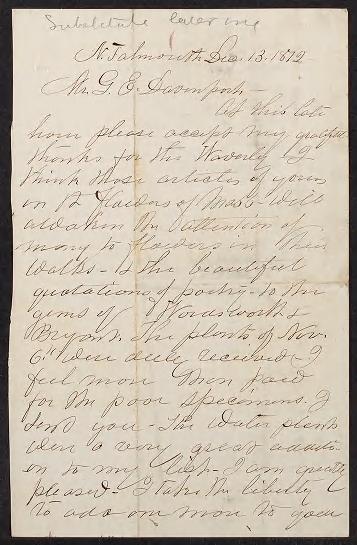 Substitute later one
N. Falmouth Dec. 13. 1872
Mr. G. E. Davenport -
At this late
hour please accept my grateful
thanks for the Waverly. I
think those articles of yours
on the flowers of Mass. will
awaken the attention of
many to flowers in their
walks - & the beautiful
quotations of poetry - to the
gems of Wordsworth &
Bryant. The plants of Nov.
6" were duly received - I
feel more then paid
for the poor specimens I
sent you - The water plants
were a very great additi-
on to my list - I am greatly
pleased - I take the liberty
to add one more to your